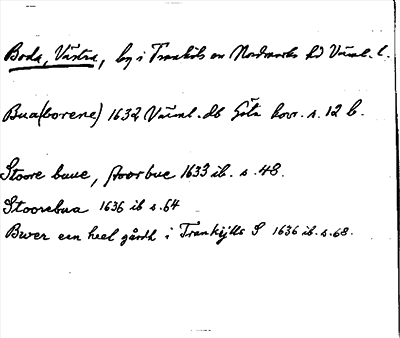 Boda, Västra, by i Trankils sn Nordmarks hd Värml. l.
Bua(borene) 1632 Värml. db Göta hovr. s. 12 b.
Stoore buue, stoorbue 1633 ib. s. 48.
Stoorebua 1636 ib s. 64
Bwer een heel gårdh i Trankijlls S 1636 ib. s. 68.